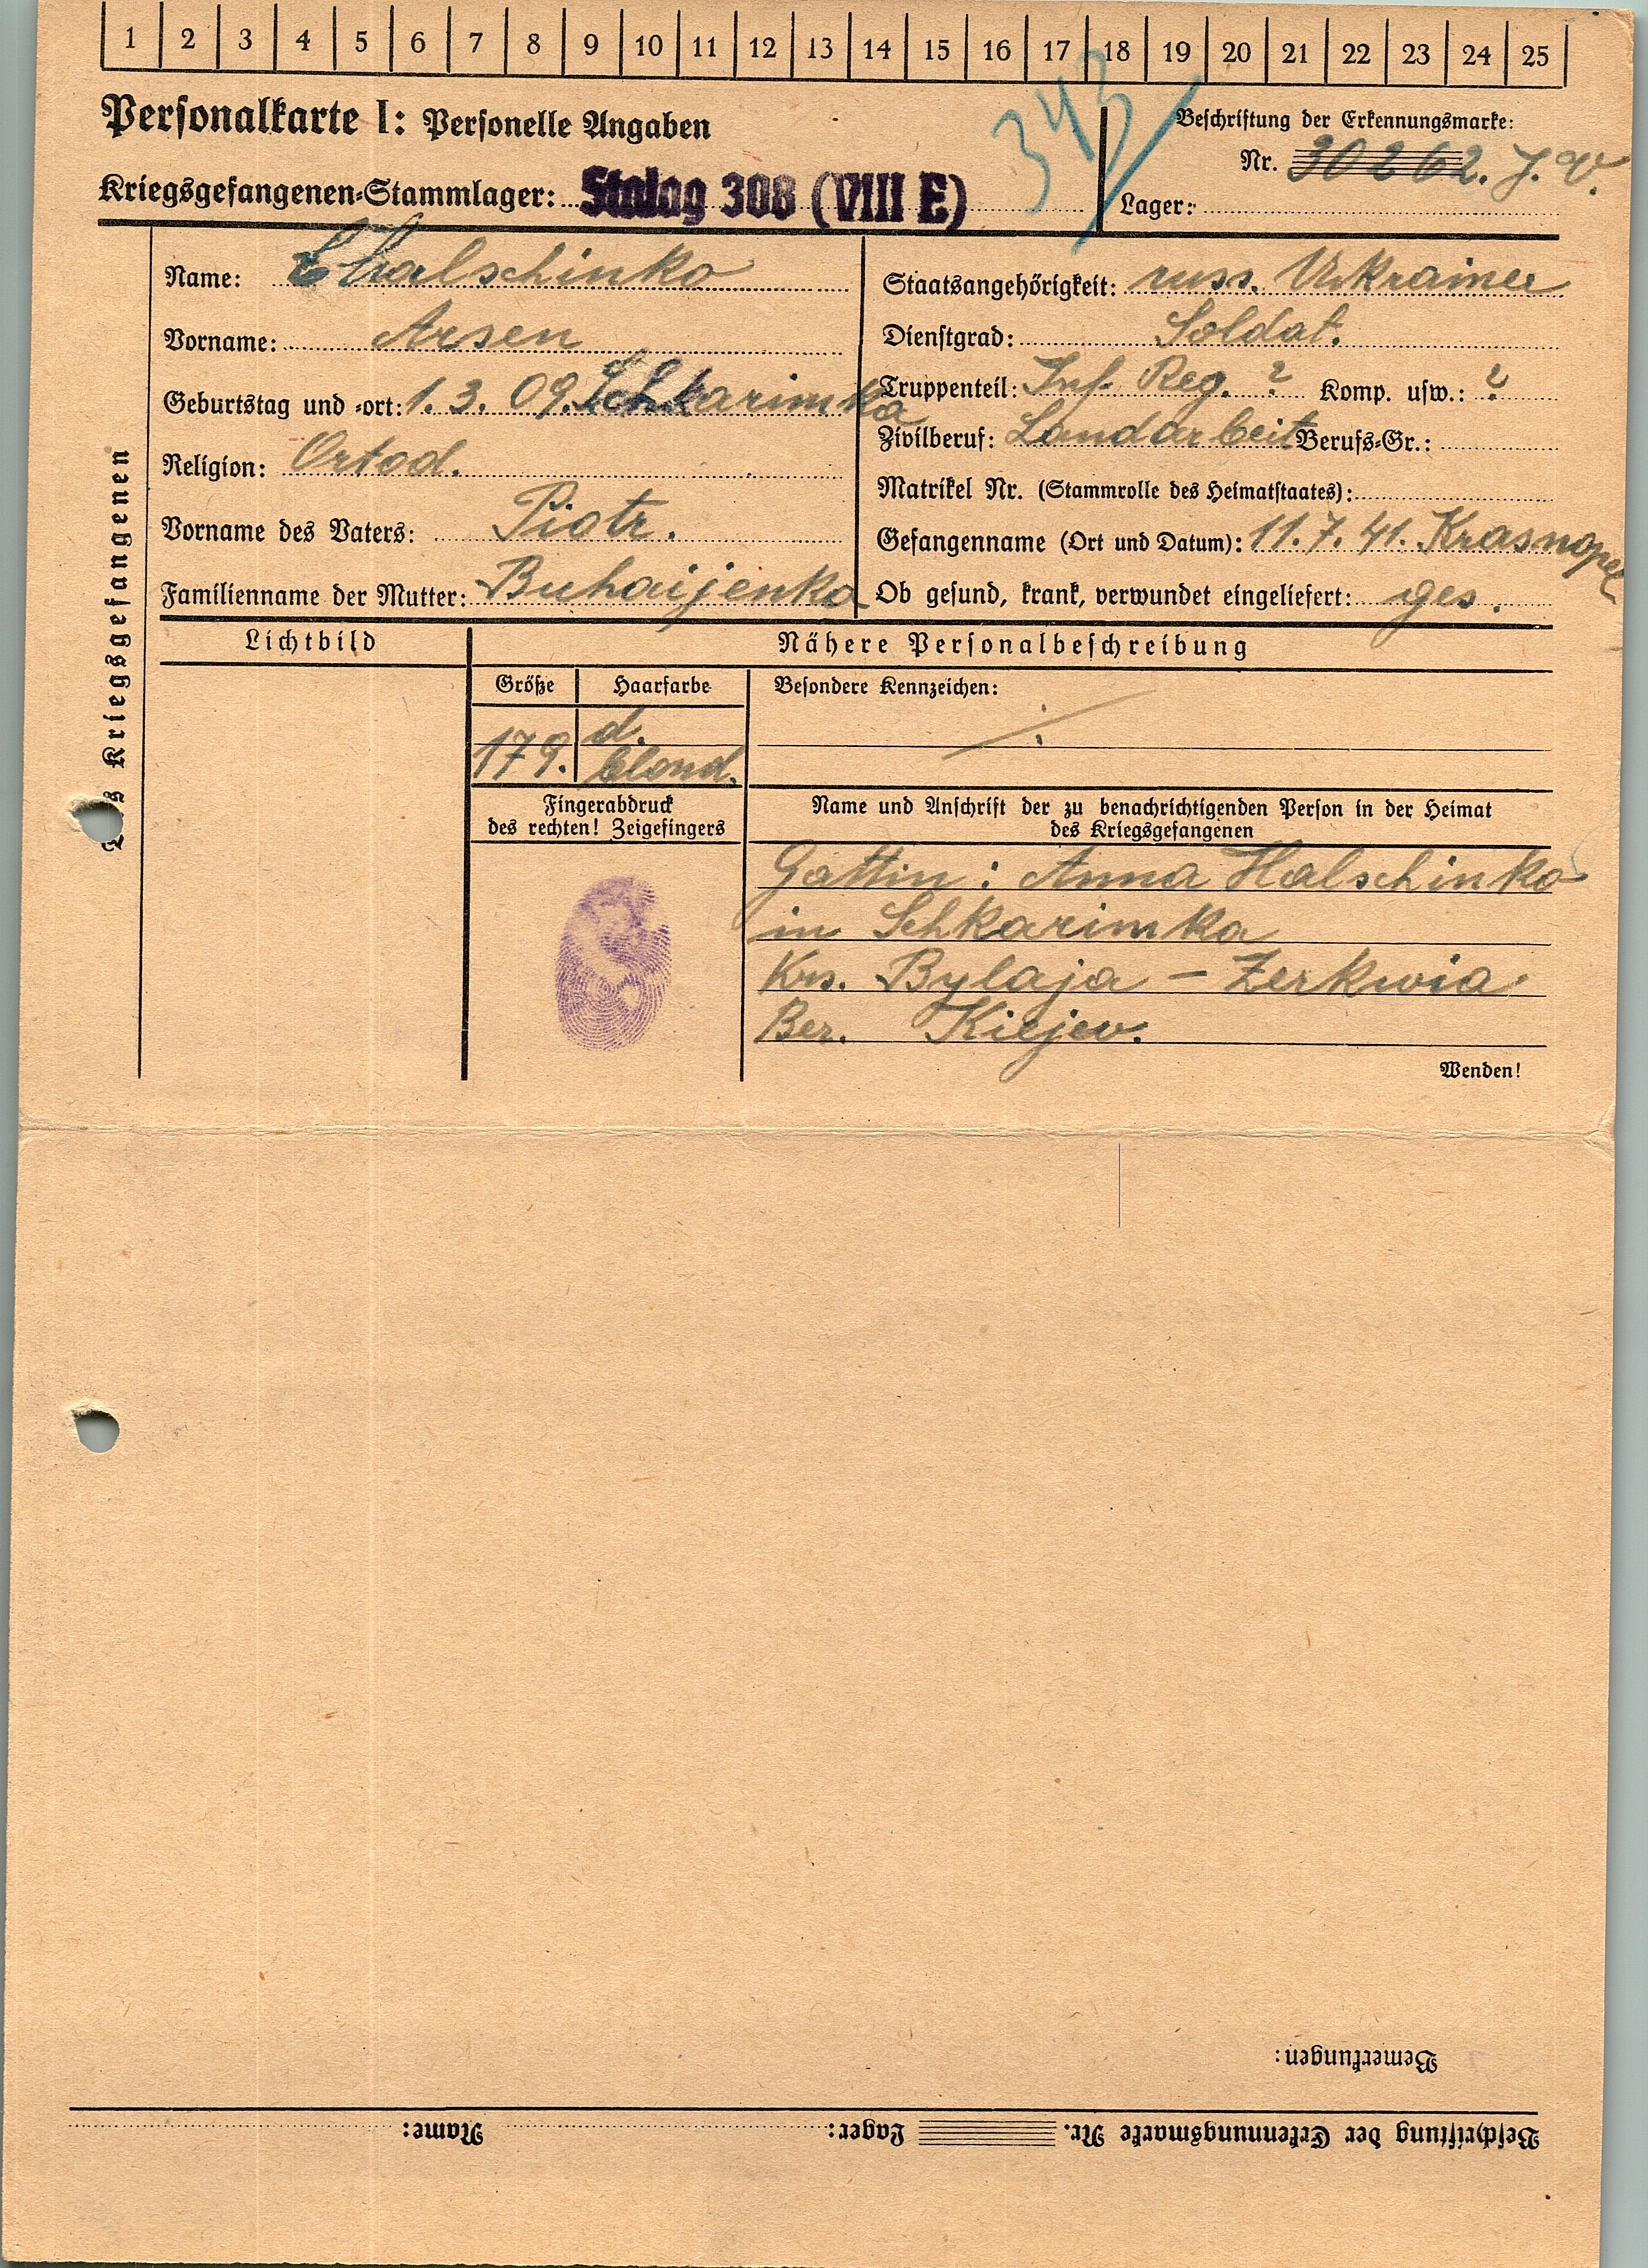 1 2 3 4 5 6 7 8 9 10 11 12 13 14 15 16 17 18 19 20 21 22 23 24 25
Personalkarte I: Personelle Angaben
343
Beschriftung der Erkennungsmarke:
Nr. 30262. J. V.
Kriegsgefangenen-Stammlager: Stalag 308 (VIII E)
Lager:
Des Kriegsgefangenen
Name: Chalschinko
Vorname: Arsen
Geburtstag und -ort: 1. 3. 09. Schkarimka
Religion: Ortod.
Vorname des Vaters: Piotr.
Familienname der Mutter: Buhaijenko
Staatsangehörigkeit: russ. Ukrainer
Dienstgrad: Soldat.
Truppenteil: Inf. Reg. ? Komp. usw.: ?
Zivilberuf: Landarbeit Berufs-Gr.:
Matrikel Nr. (Stammrolle des Heimatstaates):
Gefangenname (Ort und Datum): 11. 7. 41. Krasnopel
Ob gesund, krank, verwundet eingeliefert: ges.
Lichtbild
Nähere Personalbeschreibung
Größe
Haarfarbe
Besondere Kennzeichen:
179.
d.
blond.
Fingerabdruck
des rechten! Zeigefingers
Name und Anschrift der zu benachrichtigenden Person in der Heimat
des Kriegsgefangenen
Gattin: Anna Halschinko
in Schkarimka
Krs. Bylaja - Zerkwia
Ber. Kiejew.
Wenden!
Bemerkungen:
Beschriftung der Erkennungsmarke Nr. Lager: Name: